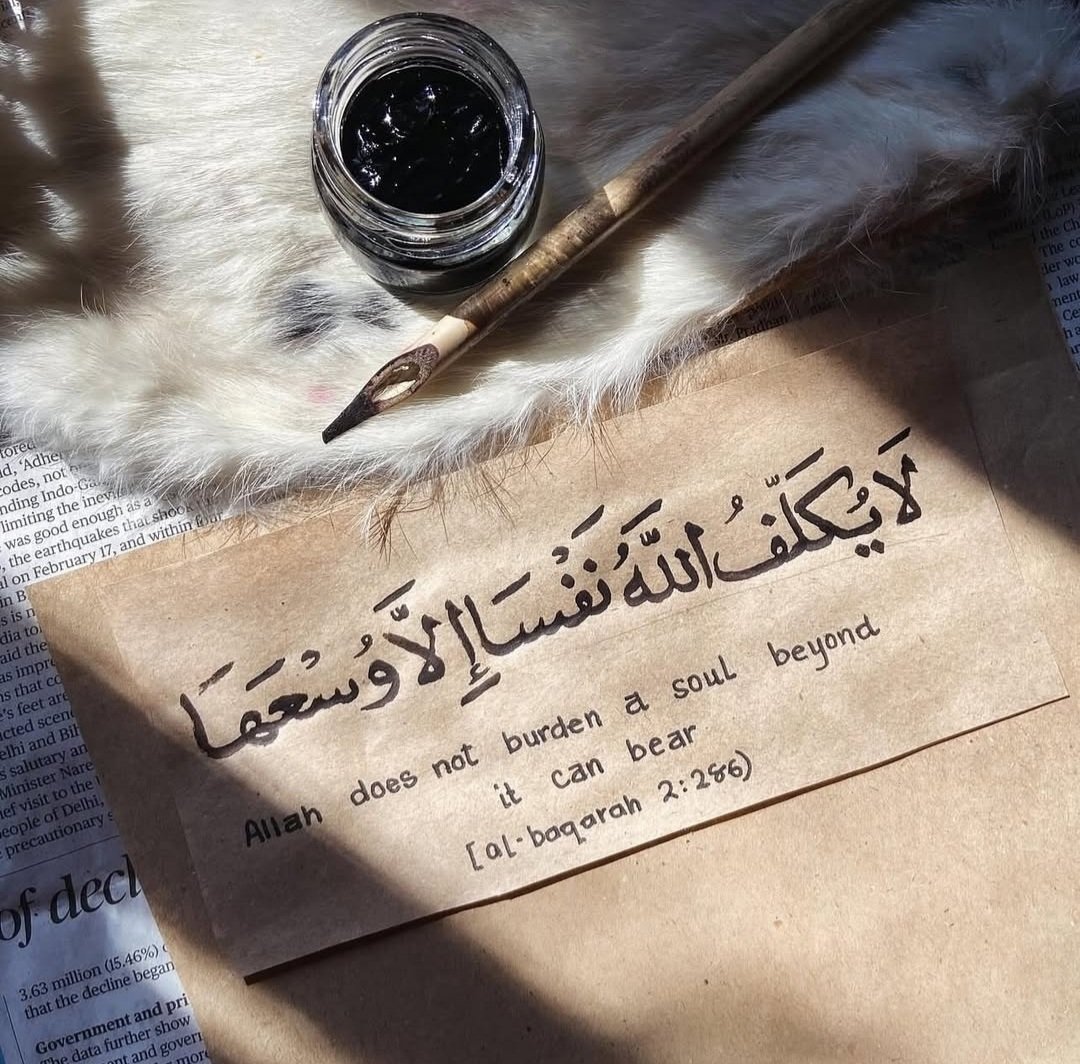 لَا يُكَلِّفُ اللَّهُ نَفْسَا إِلَّا وُسْعَهَا
Allah does not burden a soul beyond
it can bear
[al-baqarah 2:286)
codes, not
nding Indo-Ga
limiting the inevi
was good enough as a
the earthquakes that shook
al on February 17, and within
Mr. Pradhan
cted scen
elhi and Bih
s salutary an
Minister Nare
ief visit to the
people of Delhi,
precautionary s
of decl
3.63 million (15.46%)
that the decline began
Government and pri
The data further show
ent and govern